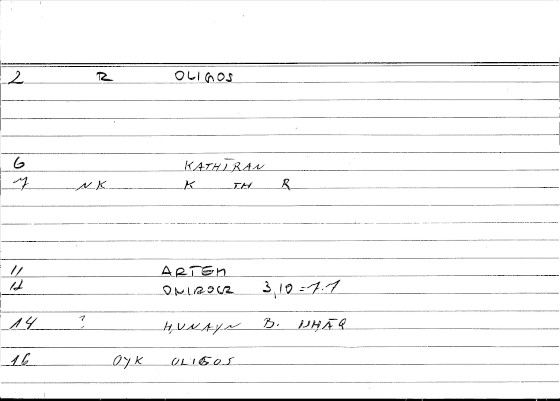 2 R OLIGOS
6 KATHĪRAN
7 NK K TH R
11 ARTEM
12 ONIROCR 3,10 = 1.1
14 ? ḤUNAYN B. ISḤĀQ
16 OYK OLIGOS